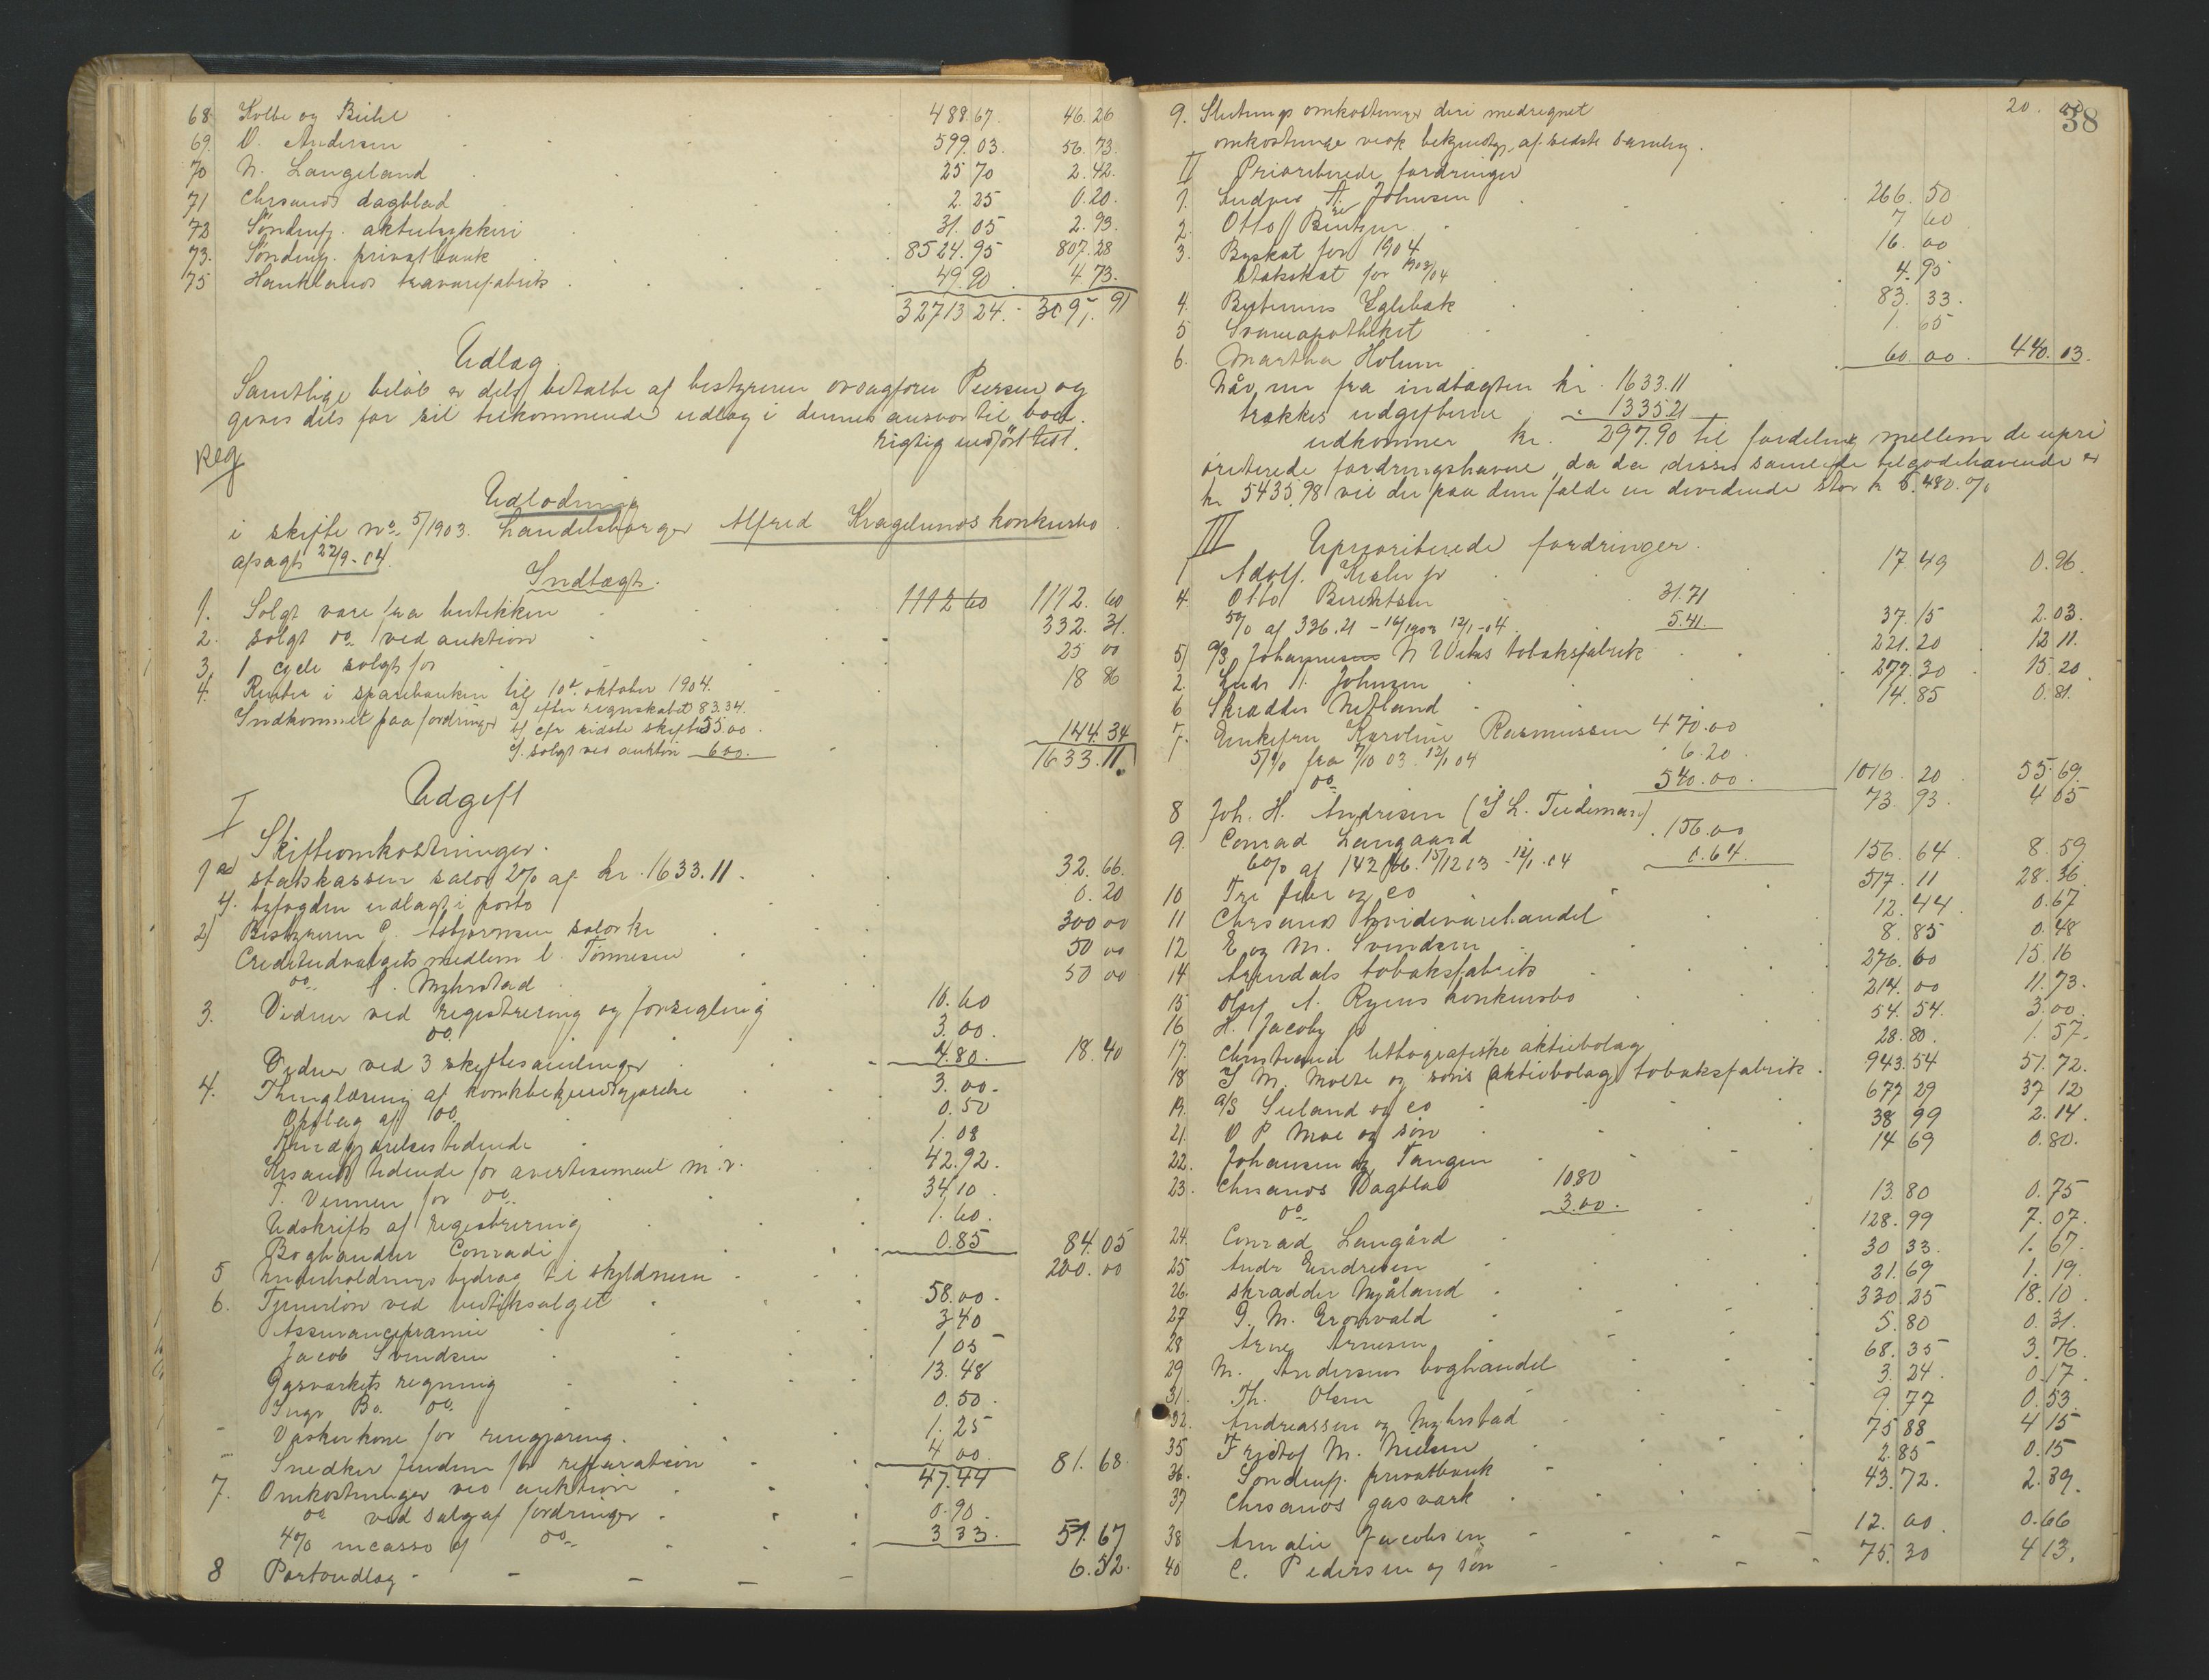 68 Kolbe og Buhl 488.67. 46.26
69. O. Andersen 599.03. 56.73.
70 N. Langeland 25 70 2.42.
71 Chrsands dagblad 2.25 0.20.
72 Söndenfj. aktietrykkeri 31.05 2.93.
73. Söndenfj. privatbank 8524.95 807.28
75 Hauklands travarefabrik 49.90 4 73.
32713 24. 3095. 91
Udlæg.
Samtlige beløb er dels betalte af bestyreren overagfører Piersen og
gives dels for sit tilkommende udlæg i dennes ansvar til boet.
rigtig udført test.
Reg
Udlodning
i skifte no. 5/1903. Handelsborger Alfred Kragelunds konkursbo.
afsagt 22/9-04.
Indtægt.
1. Solgt vare fra butikken 1112 60 1112. 60
2. solgt do. ved auktion 332. 31.
3. 1 cycle solgt for 25 00
4. Renter i sparebanken til 10de oktober 1904. 18 86
Indkommet paa fordringer a/ efter regnskabet 83.34.
b/ efter sidste skifte 55.00.
c/ solgt ved auktion 6.00. 144.34
1633.11.
Udgift
I
Skifteomkostninger.
1 a) statskassen salær 2% af kr. 1633.11. 32. 66.
byfogden udlagt i porto 0. 20
2) Bestyreren C. Asbjørnsen salær kr 300 00
Creditudvalgets medlem C. Tönnesen 50 00
do. Myhrstad 50 00
3. Vidner ved registrering og forsegling 10.60
do. 3.00.
Vidner ved 3 skiftesamlinger 4.80. 18.40
4. Thinglæsning af konkbekjendtgjørelse 3.00.
Opslag af do. 0.50
Kundgjørelsestidende 1.08
Krsands tidende for avertisement m.v. 42.92.
T. Vennen for do. 34.10.
Udskrift af registrering 1.60.
Boghandler Conradi 0.85 84.05
5 Underholdningsbidrag til skyldneren 200.00
6. Tjenerløn ved butiksalget 58.00.
Assurancepræmie 3 40
Jacob Svendsen 1 05
Gasværkets regning 13.48
do. 0.50.
Vaskerkone for rengjøring. 1.25
Snedker Jendem for reparation 4 00 81.68.
7. Omkostninger ved auktion 47.44
do ved salg af fordringer 0.90.
4% incasso af do. 3 33. 51.67
8 Portoudlæg 6.52.
9. Slutningsomkostninger deri medregnet 20. 00
38
omkostninge vedk bekjendtg. af sidste samling.
II Prioriterede fordringer
1. Ludvig A. Johnsen 266. 50
2. Otto Bentzen 7 60
3. Byskat for 1904 16. 00
Statsskat for 1903/04 4.95
4. Bestemors Eglebæk 83. 33.
5 Svaneapotheket 1. 65
6. Martha Holum 60. 00. 440. 03.
Når nu fra indtægten kr. 1633.11
trækkes udgifterne 1335.21
udkommer kr. 297.90 til fordeling mellem de upri
oriterede fordringshavere, da der disses samlede tilgodehavende er
kr 5435.98 vil der paa dem falde en dividende stor kr 5.480.%
III Uprioriterede fordringer.
1 Adolf. Kisler jr 17. 49 0.96.
4. Otto Berentsen 31.71
5% af 326.21 5.41. 37. 15 2.03.
5) A/S Johannesen N Wiks tobaksfabrik 221. 20 12 11.
2. Ludv. A. Johnsen 277. 30 15.20.
6 Skrædder Netland 14. 85 0.81.
7. Enkefru Karoline Rasmussen 470.00
5% fra 7/10 03. 12/1 04 6.20.
do. 540.00. 1016. 20 55.69.
8 Joh. H. Andresen (I L. Tiedeman) 73. 93. 4 05
9. Conrad Langaard 156.00
6% af 142 46. 15/12 03 - 12/1.04 0.64. 156. 64 8. 59
10 517. 11 28. 36
11 Chrsands hvidevarehandel 12. 44. 0.67
12 E og M. Svendsen 8. 85 0.48
14 Arendals tobaksfabrik 276. 60 15.16
15 Oluf A. Ryens konkursbo 214. 00 11.73.
16 H. Jacoby jr 54. 54. 3.00.
17. Christiania lithografiske aktiebolag 28. 80. 1.57.
18 I M. Molse og sons aktiebolag tobaksfabrik. 943.54 51.72.
19. A/S Sieland og co 677 29 37 12
21. O P Moe og søn 38 99 2.14.
22. Johansen og Tangen 14 69 0.80.
23. Chrsands Dagblad 1080
do. 3.00. 13. 80 0.75
24. Conrad Langård 128. 99 7.07.
25 Andr Endresen 30 33. 1.67.
26. skrædder Mjåland 21. 69 1.19.
27 G. M. Gronvald 330. 25 18.10.
28 Arne Arnesen 5. 80 0.31.
29 M. Andersens boghandel 68. 35 3.76.
31. Th. Olsen 3. 24. 0.17.
32. Andreassen og Myhrstad 9. 77 0.53
35 Fridtjof M. Nielsen 75 88 4 15
36. Söndenfj. privatbank 2. 85 0.15
37 Chrsands gasværk 43. 72. 2.39.
38 Amalie Jacobsen 12. 00. 0.66
40 C. Pedersen og søn 75. 30 4 13.